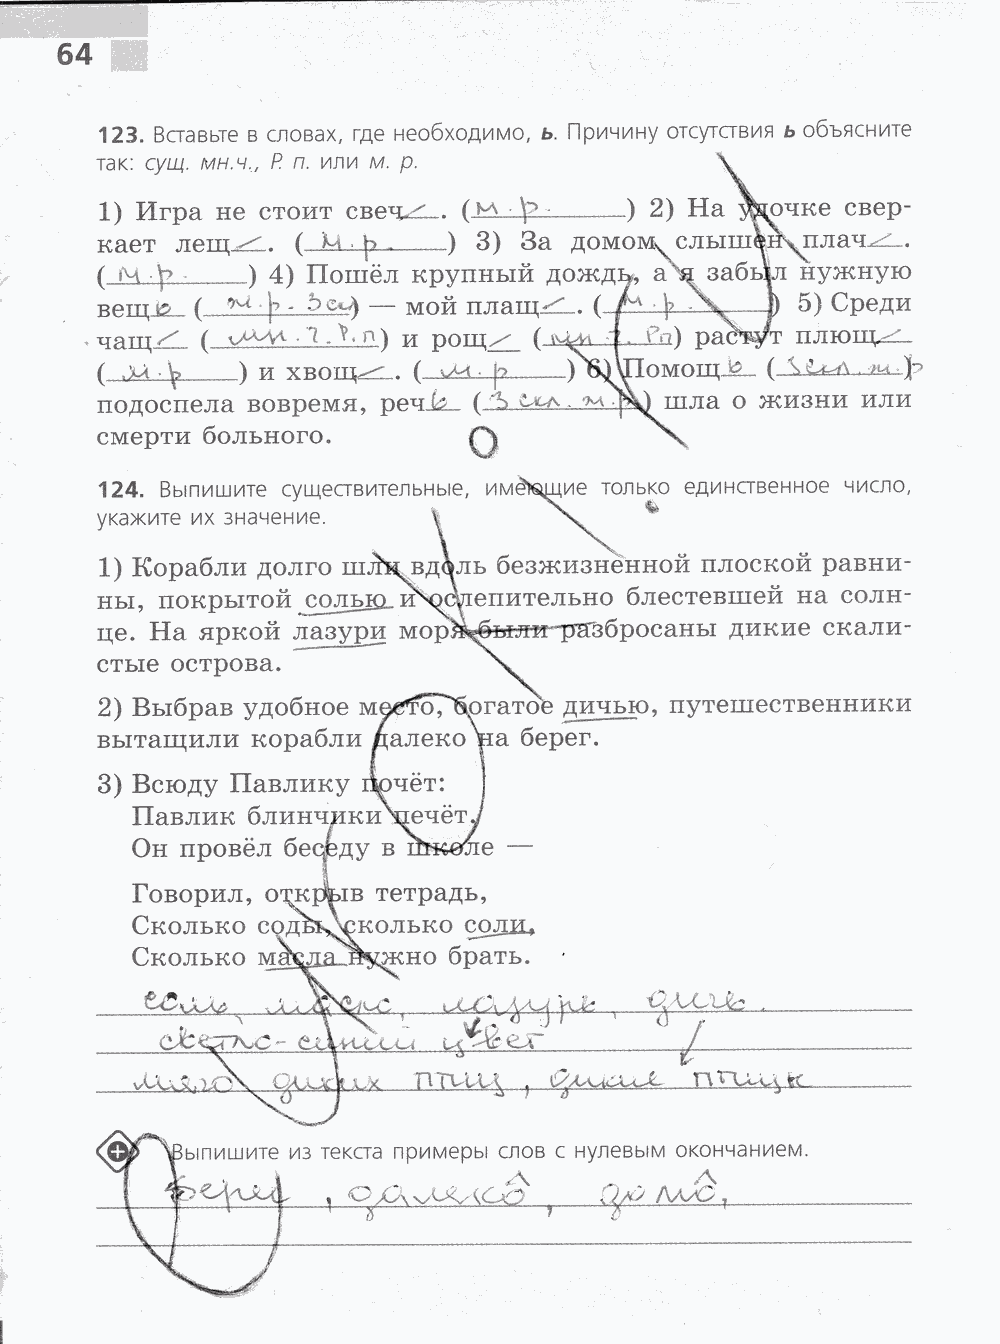 64
123. Вставьте в словах, где необходимо, ь. Причину отсутствия ь объясните
так: сущ. мн.ч., Р. п. или м. р.
1) Игра не стоит свеч__. (м.р.) 2) На удочке свер-
кает лещ__. (м.р.) 3) За домом слышен плач__.
(м.р.) 4) Пошёл крупный дождь, а я забыл нужную
вещь (ж.р. 3 ск) — мой плащ__. (м.р.) 5) Среди
чащ__ (мн.ч. Р.п) и рощ__ (мн.ч. Рп) растут плющ__
(м.р) и хвощ__. (м.р) 6) Помощь (3 скл. ж.р)
подоспела вовремя, речь (3 скл. ж.р) шла о жизни или
смерти больного.
124. Выпишите существительные, имеющие только единственное число,
укажите их значение.
1) Корабли долго шли вдоль безжизненной плоской равни-
ны, покрытой солью и ослепительно блестевшей на солн-
це. На яркой лазури моря были разбросаны дикие скали-
стые острова.
2) Выбрав удобное место, богатое дичью, путешественники
вытащили корабли далеко на берег.
3) Всюду Павлику почёт:
Павлик блинчики печёт,
Он провёл беседу в школе —
Говорил, открыв тетрадь,
Сколько соды, сколько соли,
Сколько масла нужно брать.
соль, масло, лазурь, дичь.
светло-синий цвет
мясо диких птиц, дикие птицы
Выпишите из текста примеры слов с нулевым окончанием.
берег, далеко,